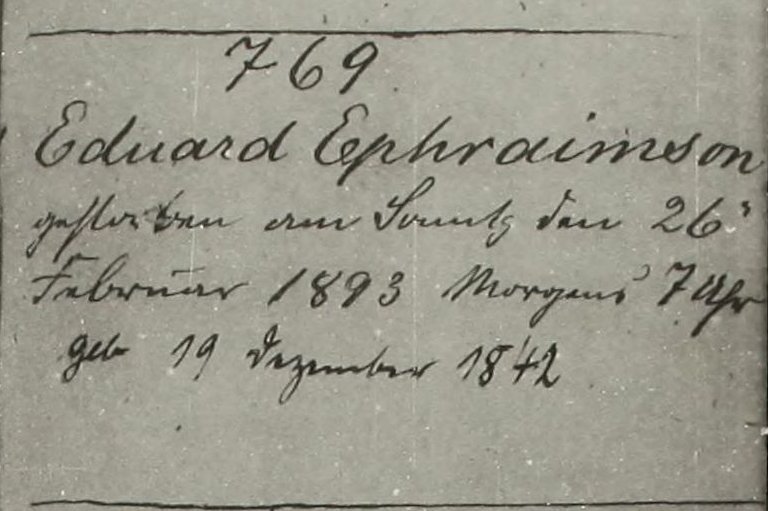 769
Eduard Ephraimson
gestorben am Sonntg den 26"
Februar 1893 Morgens 7 Uhr
geb 19 Dezember 1842